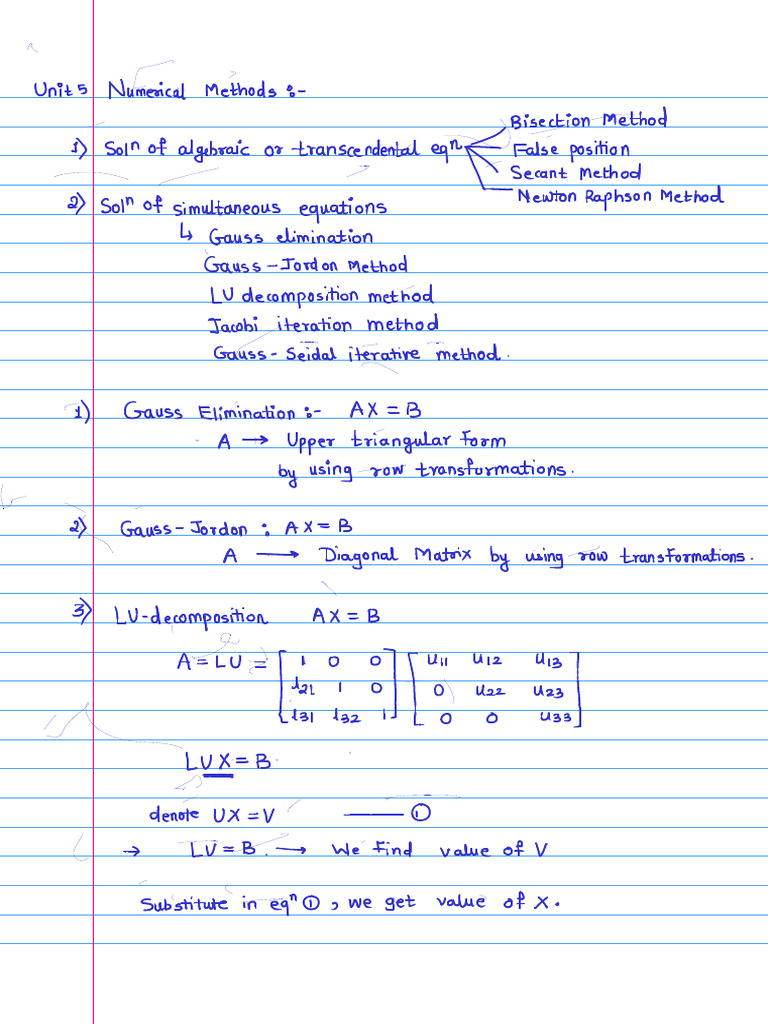 Unit 5 Numerical Methods :-
1) Solⁿ of algebraic or transcendental eqⁿ
Bisection Method
False position
Secant Method
Newton Raphson Method
2) Solⁿ of simultaneous equations
↳ Gauss elimination
Gauss-Jordon Method
LU decomposition method
Jacobi iteration method
Gauss-Seidal iterative method.
1) Gauss Elimination :- AX = B
A → Upper triangular form
by using row transformations.
2) Gauss-Jordon : AX = B
A → Diagonal Matrix by using row transformations.
3) LU-decomposition AX = B
A = LU = [1 0 0] [u11 u12 u13]
[l21 1 0] [0 u22 u23]
[l31 l32 1] [0 0 u33]
LUX = B
denote UX = V ——— ①
→ LV = B. → We find value of V
Substitute in eqⁿ ①, we get value of X.